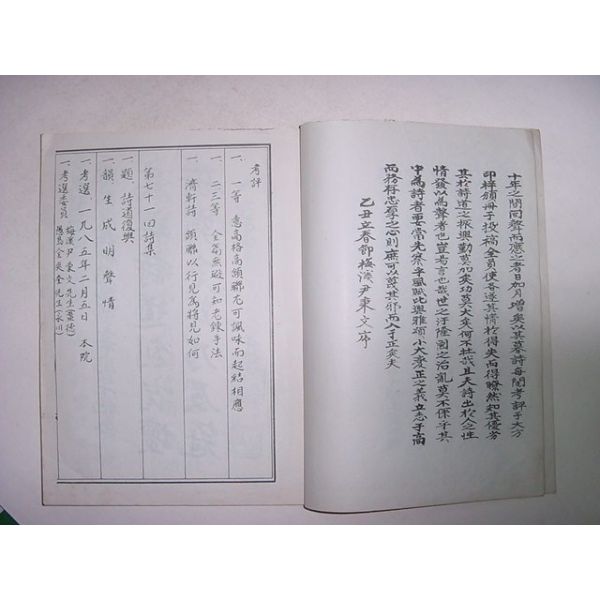 十年之間同聲而應之者日加月增矣以其募詩每閱考評于大方
印梓頒冊子投稿全員使各遂其情於得失而得瞭然知其優劣
其於詩道之振興勤莫加矣功莫大矣何不壯哉且夫詩出於人之性
情發以爲聲者也豈易言也哉世之汙隆國之治亂莫不係乎其
中爲詩者要當先察乎風賦比興雅頌小大變正之義立志乎高
而務存忠厚之心則庶可以莫其邪而入于正矣夫
乙丑立春節梅溪尹東文序
考評
一、一等 意高格高頷聯尤可諷味而起結相應
一、二三等 全篇無礙可知老鍊手法
一、濟軒詩 頭聯以行見爲將見如何
第七十一回詩集
一、題 詩道復興
一、韻 生成明聲情
一、考選 一九八五年二月五日 本院
一、考選委員 梅溪尹東文先生
金 先生